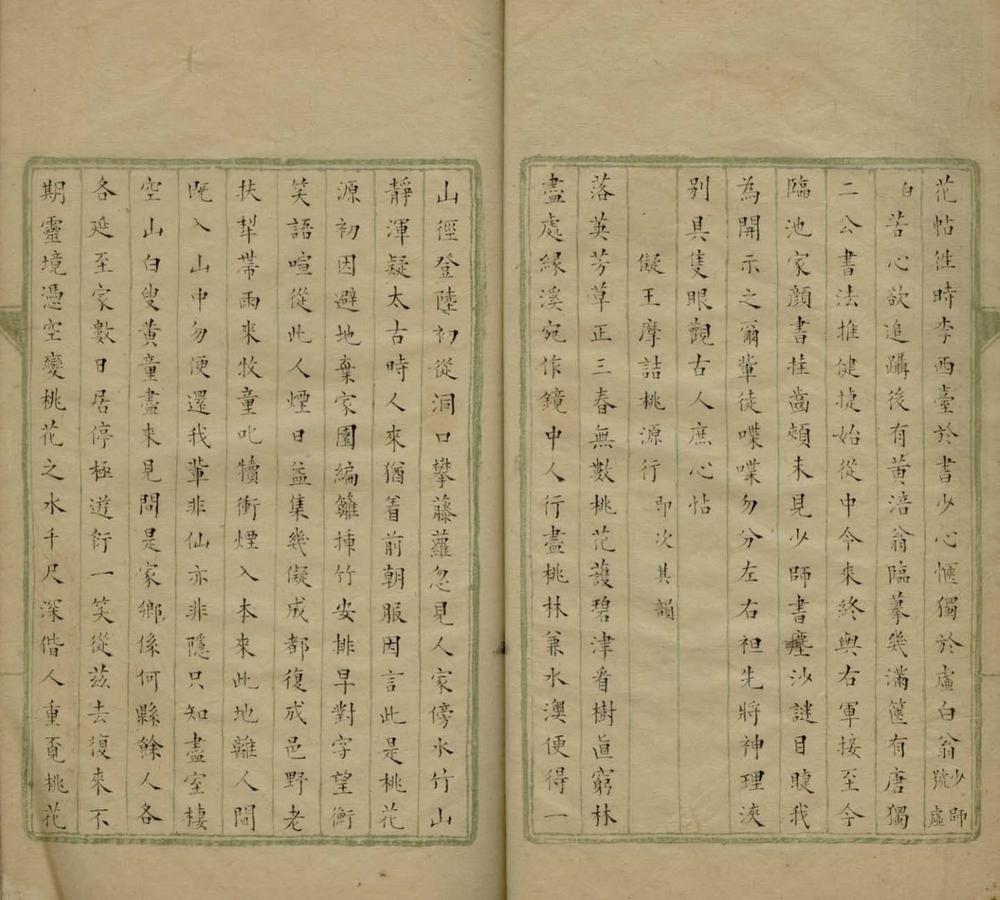 花帖徃時李西臺於書少心愜獨於虛白翁少師號虛
白苦心欲追躡後有黃涪翁臨摹幾滿篋有唐獨
二公書法推健捷始從中令來終與右軍接至今
臨池家顏書挂齒頰未見少師書塵沙謎目睫我
為開示之爾輩徒喋喋勿分左右袒先將神理浹
别具隻眼觀古人庶心帖
儗王摩詰桃源行即次其韻
落英芳草正三春無數桃花護碧津看樹眞窮林
盡處緣溪宛作鏡中人行盡桃林兼水澳便得一
山徑登陸初從洞口攀藤蘿忽見人家傍水竹山
靜渾疑太古時人來猶着前朝服因言此是桃花
源初因避地棄家園編籬揷竹安排早對宇望衡
笑語喧從此人煙日益集幾儗成都復成邑野老
扶犁帶雨來牧童叱犢衝煙入本來此地離人間
旣入山中勿便還我輩非仙亦非隱只知盡室棲
空山白叟黃童盡來見問是家鄉係何縣餘人各
各延至家數日居停極遊衍一笑從茲去復來不
期靈境憑空變桃花之水千尺深偕人重覓桃花